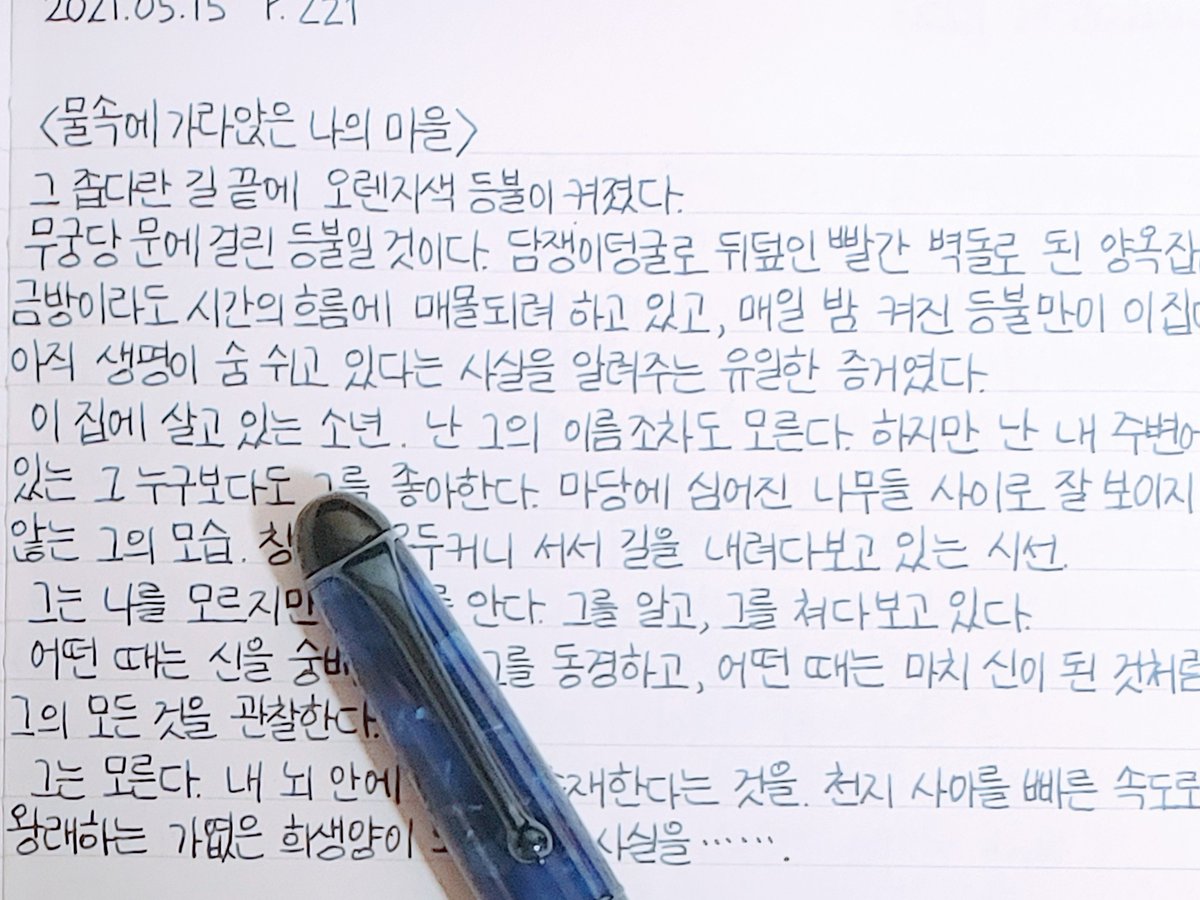 2021.05.15 P. 221
<물속에 가라앉은 나의 마을>
그 좁다란 길 끝에 오렌지색 등불이 켜졌다.
무궁당 문에 걸린 등불일 것이다. 담쟁이덩굴로 뒤덮인 빨간 벽돌로 된 양옥집
금방이라도 시간의 흐름에 매몰되려 하고 있고, 매일 밤 켜진 등불만이 이 집
아직 생명이 숨 쉬고 있다는 사실을 알려주는 유일한 증거였다.
이 집에 살고 있는 소년. 난 그의 이름조차도 모른다. 하지만 난 내 주변에
있는 그 누구보다도 그를 좋아한다. 마당에 심어진 나무들 사이로 잘 보이지
않는 그의 모습. 우두커니 서서 길을 내려다보고 있는 시선.
그는 나를 모르지만 안다. 그를 알고, 그를 쳐다보고 있다.
어떤 때는 신을 그를 동경하고, 어떤 때는 마치 신이 된 것처럼
그의 모든 것을 관찰한다.
그는 모른다. 내 뇌 안에 것을. 천지 사이를 빠른 속도로
왕래하는 가엾은 희생양이 사실을…….